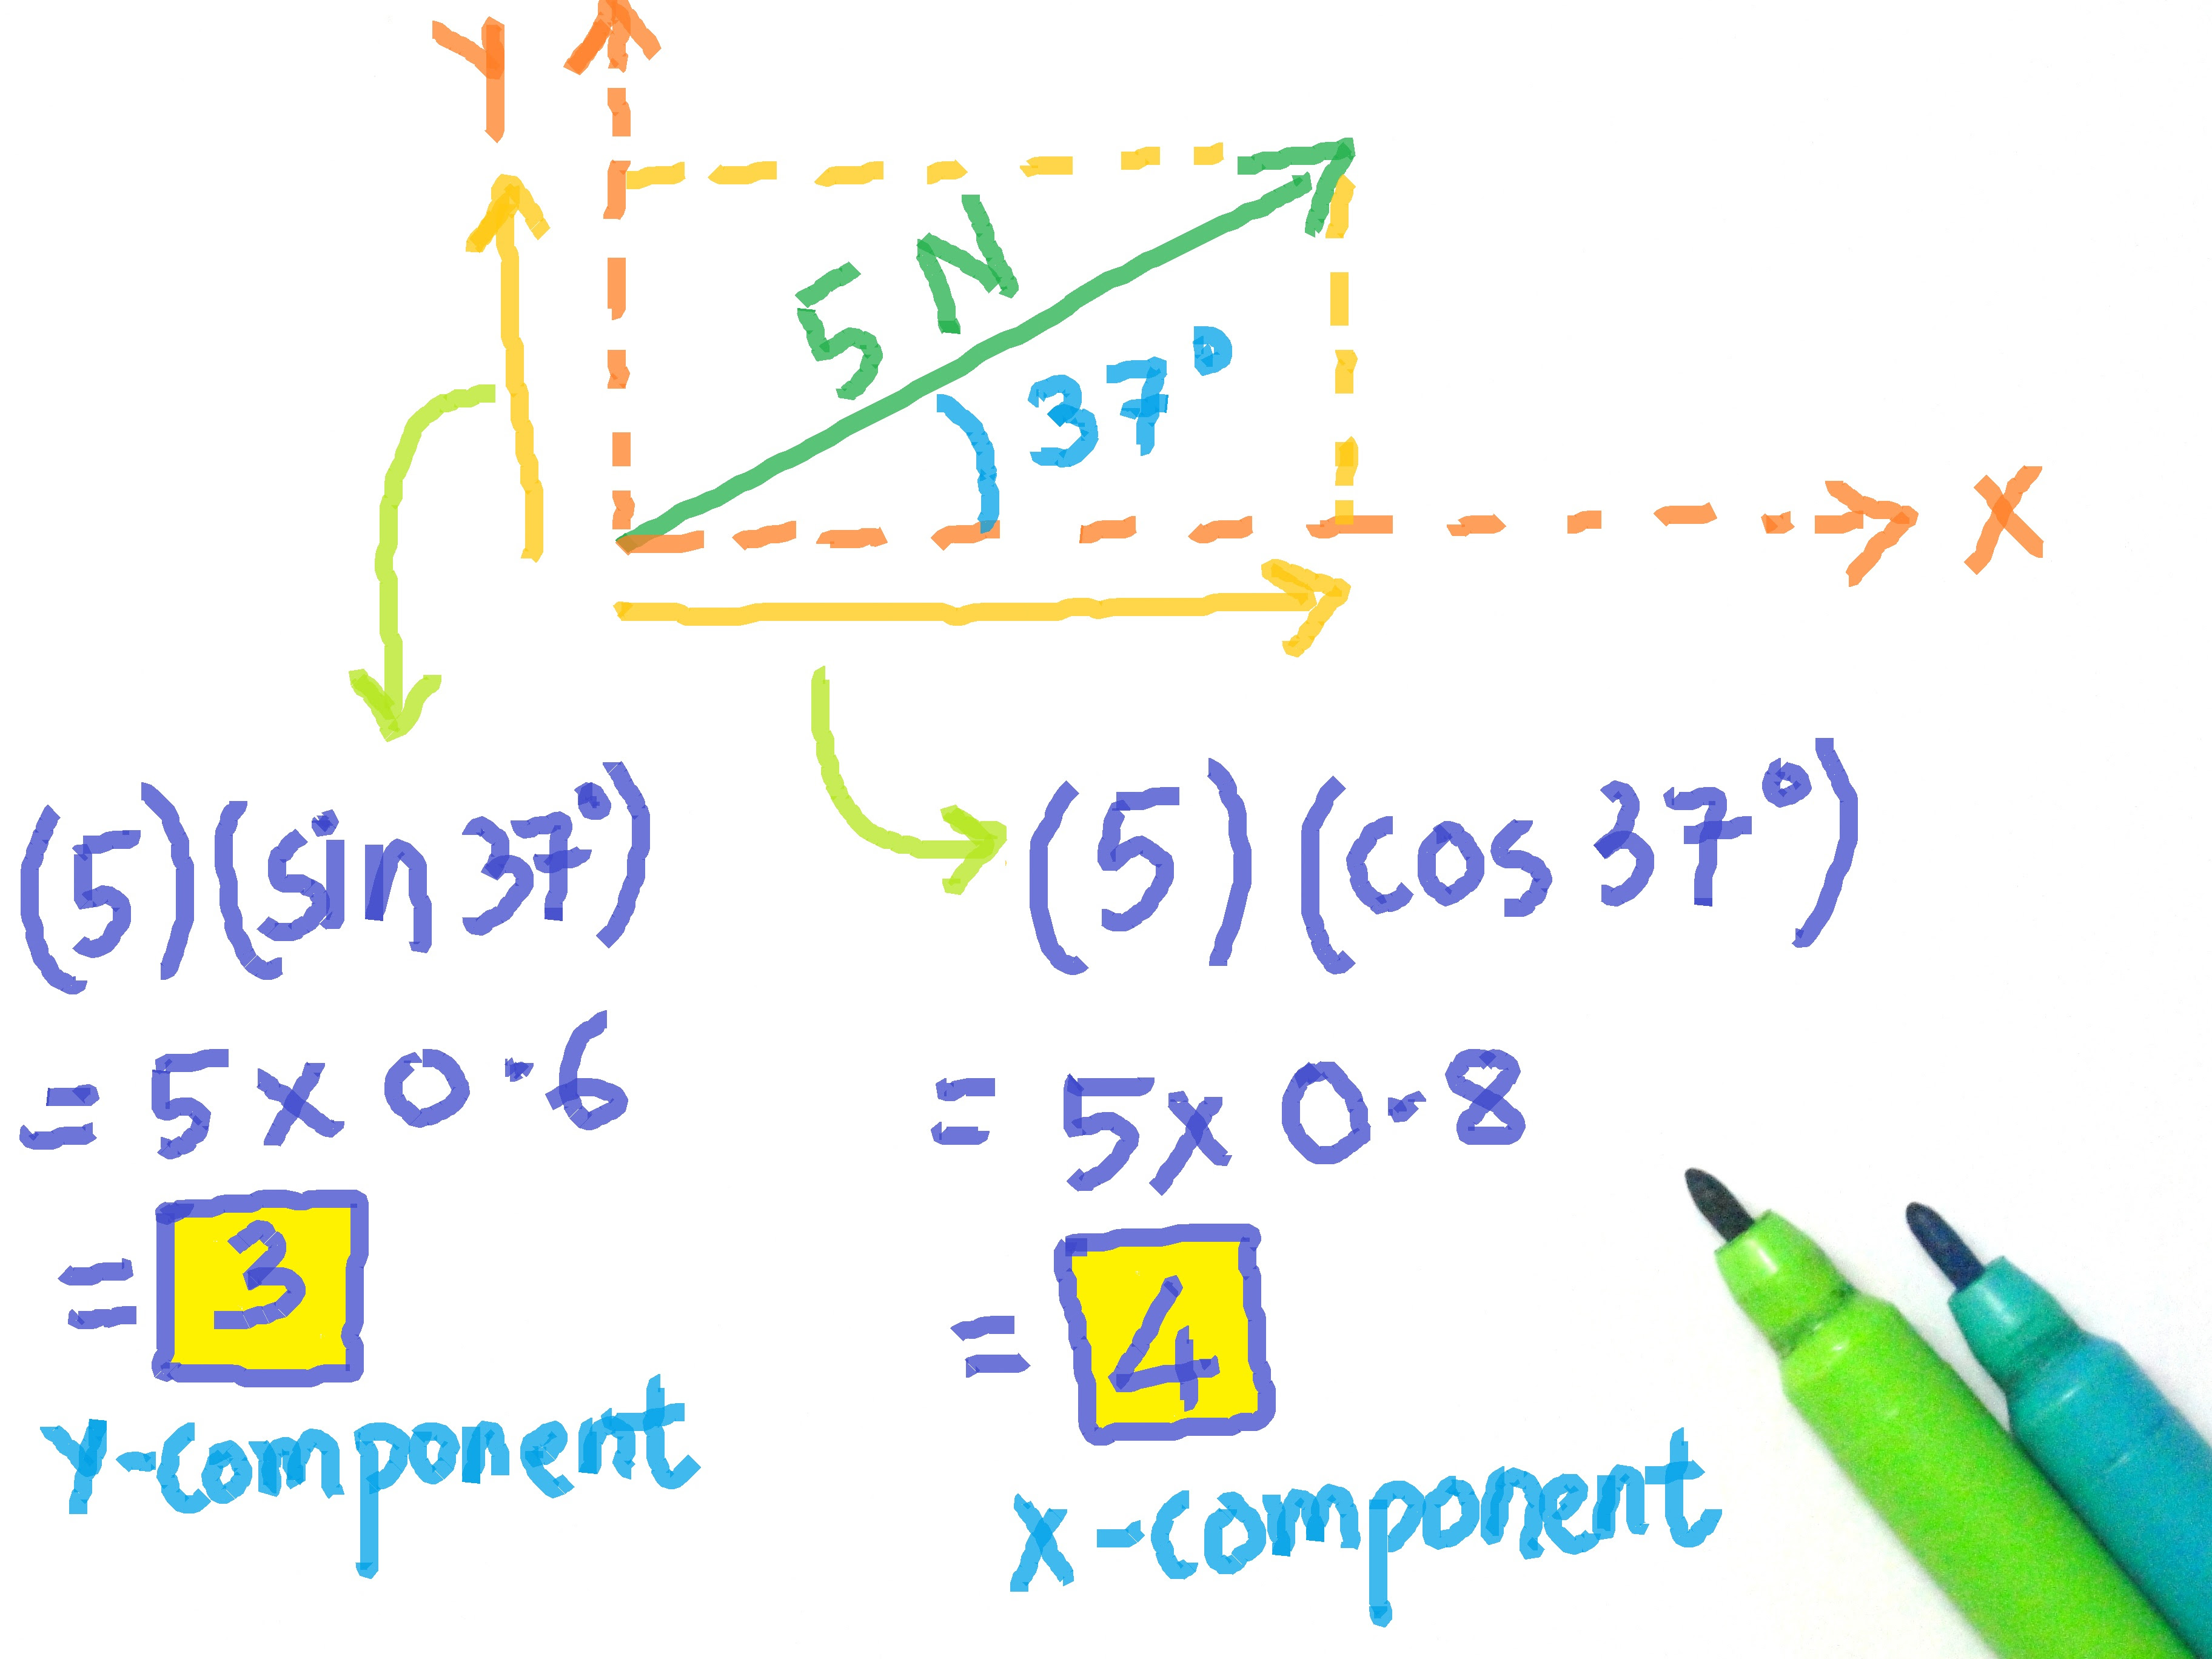 Y
5 N
37°
X
(5)(sin 37°)
= 5 x 0.6
= 3
Y-component
(5)(cos 37°)
= 5x 0.8
= 4
X-component